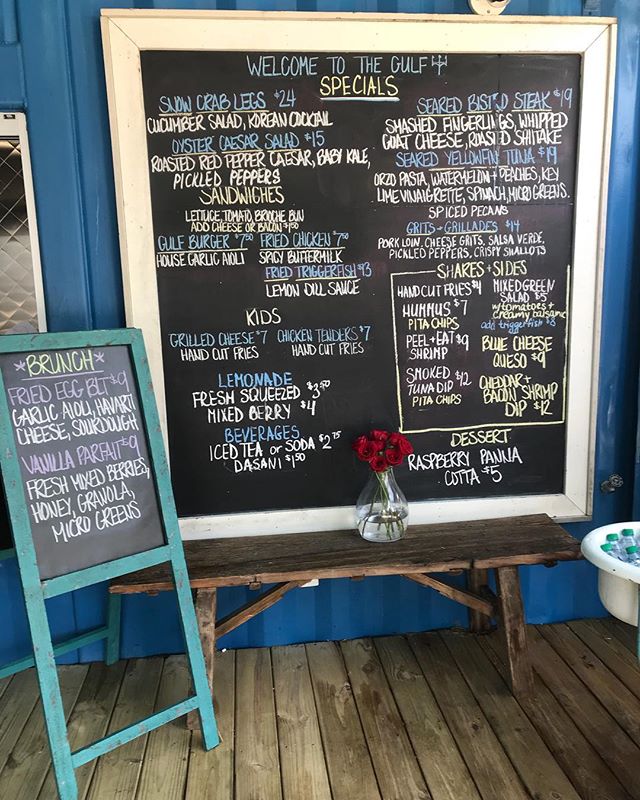 WELCOME TO THE GULF
SPECIALS
SNOW CRAB LEGS $24
CUCUMBER SALAD, KOREAN COCKTAIL
OYSTER CAESAR SALAD $15
ROASTED RED PEPPER CAESAR, BABY KALE,
PICKLED PEPPERS
SANDWICHES
LETTUCE, TOMATO, BRIOCHE BUN
ADD CHEESE OR BACON $1.50
GULF BURGER $7.50 FRIED CHICKEN $7.50
HOUSE GARLIC AIOLI SPICY BUTTERMILK
FRIED TRIGGERFISH $13
LEMON DILL SAUCE
KIDS
GRILLED CHEESE $7 CHICKEN TENDERS $7
HAND CUT FRIES HAND CUT FRIES
LEMONADE
FRESH SQUEEZED $3.50
MIXED BERRY $4
BEVERAGES
ICED TEA or SODA $2.75
DASANI $1.50
SEARED BISTRO STEAK $19
SMASHED FINGERLINGS, WHIPPED
GOAT CHEESE, ROASTED SHITAKE
SEARED YELLOWFIN TUNA $19
ORZO PASTA, WATERMELON + PEACHES, KEY
LIME VINAIGRETTE, SPINACH, MICRO GREENS.
SPICED PECANS
GRITS + GRILLADES $14
PORK LOIN, CHEESE GRITS, SALSA VERDE,
PICKLED PEPPERS, CRISPY SHALLOTS
SHAKES + SIDES
HAND CUT FRIES $4
HUMMUS $7
PITA CHIPS
PEEL + EAT $9
SHRIMP
SMOKED $12
TUNA DIP
PITA CHIPS
MIXED GREEN
SALAD $5
w/tomatoes +
creamy balsamic
add triggerfish $8
BLUE CHEESE
QUESO $9
CHEDDAR +
BACON SHRIMP
DIP $12
DESSERT
RASPBERRY PANNA
COTTA $5
BRUNCH
FRIED EGG BLT $9
GARLIC AIOLI, HAVARTI
CHEESE, SOURDOUGH
VANILLA PARFAIT $9
FRESH MIXED BERRIES,
HONEY, GRANOLA,
MICRO GREENS